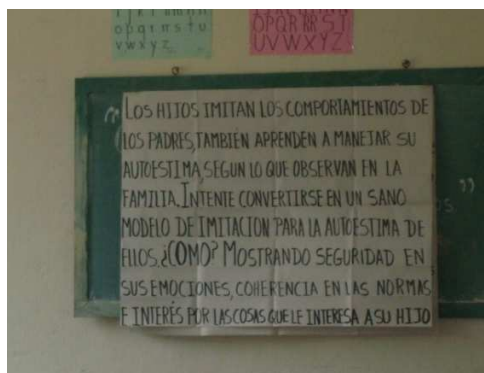 o p q r s t u
v w x y z
O P Q R RR S T
U V W X Y Z
LOS HIJOS IMITAN LOS COMPORTAMIENTOS DE
LOS PADRES, TAMBIÉN APRENDEN A MANEJAR SU
AUTOESTIMA, SEGUN LO QUE OBSERVAN EN LA
FAMILIA. INTENTE CONVERTIRSE EN UN SANO
MODELO DE IMITACION PARA LA AUTOESTIMA DE
ELLOS. ¿COMO? MOSTRANDO SEGURIDAD EN
SUS EMOCIONES, COHERENCIA EN LAS NORMAS
E INTERÉS POR LAS COSAS QUE LE INTERESA A SU HIJO